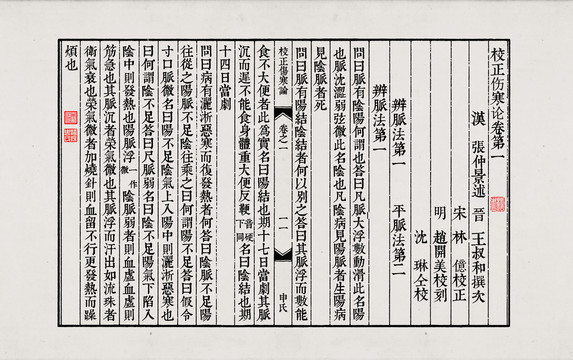 校正伤寒论卷第一
漢 張仲景述 晉 王叔和撰次
宋 林 億校正
明 趙開美校刻
沈 琳仝校
辨脈法第一 平脈法第二
辨脈法第一
問曰脈有陰陽何謂也答曰凡脈大浮數動滑此名陽
也脈沈澀弱弦微此名陰也凡陰病見陽脈者生陽病
見陰脈者死
問曰脈有陽結陰結者何以別之答曰其脈浮而數能
校正傷寒論 卷之一 一一 申氏
食不大便者此為實名曰陽結也期十七日當劇其脈
沉而遲不能食身體重大便反鞕音硬下同名曰陰結也期
十四日當劇
問曰病有灑淅惡寒而復發熱者何答曰陰脈不足陽
往從之陽脈不足陰往乘之曰何謂陽不足答曰假令
寸口脈微名曰陽不足陰氣上入陽中則灑淅惡寒也
曰何謂陰不足答曰尺脈弱名曰陰不足陽氣下陷入
陰中則發熱也陽脈浮一作微陰脈弱者則血虛血虛則
筋急也其脈沉者榮氣微也其脈浮而汗出如流珠者
衛氣衰也榮氣微者加燒針則血留不行更發熱而躁
煩也